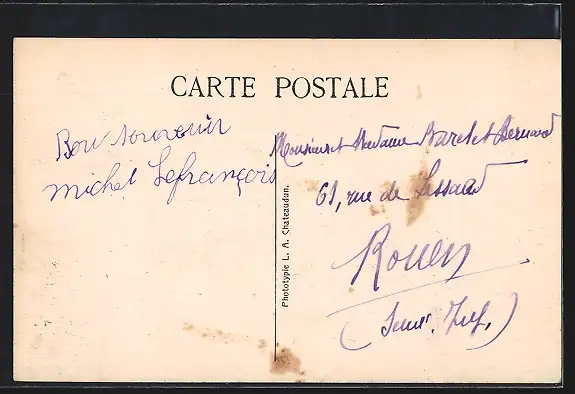 CARTE POSTALE
Bon souvenir
Michel Lefrançois
Monsieur et Madame Barelet Bernard
61, rue de Lessard
Rouen
(Seine Inf.)
Phototypie L. A. Chateaudun.